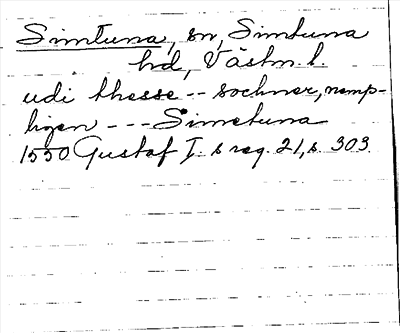 Simtuna, sn, Simtuna
hd, Västm. l.
udi thesse -- sochner, nemp-
ligen --- Simetuna
1550 Gustaf I. s reg. 21, s. 303.